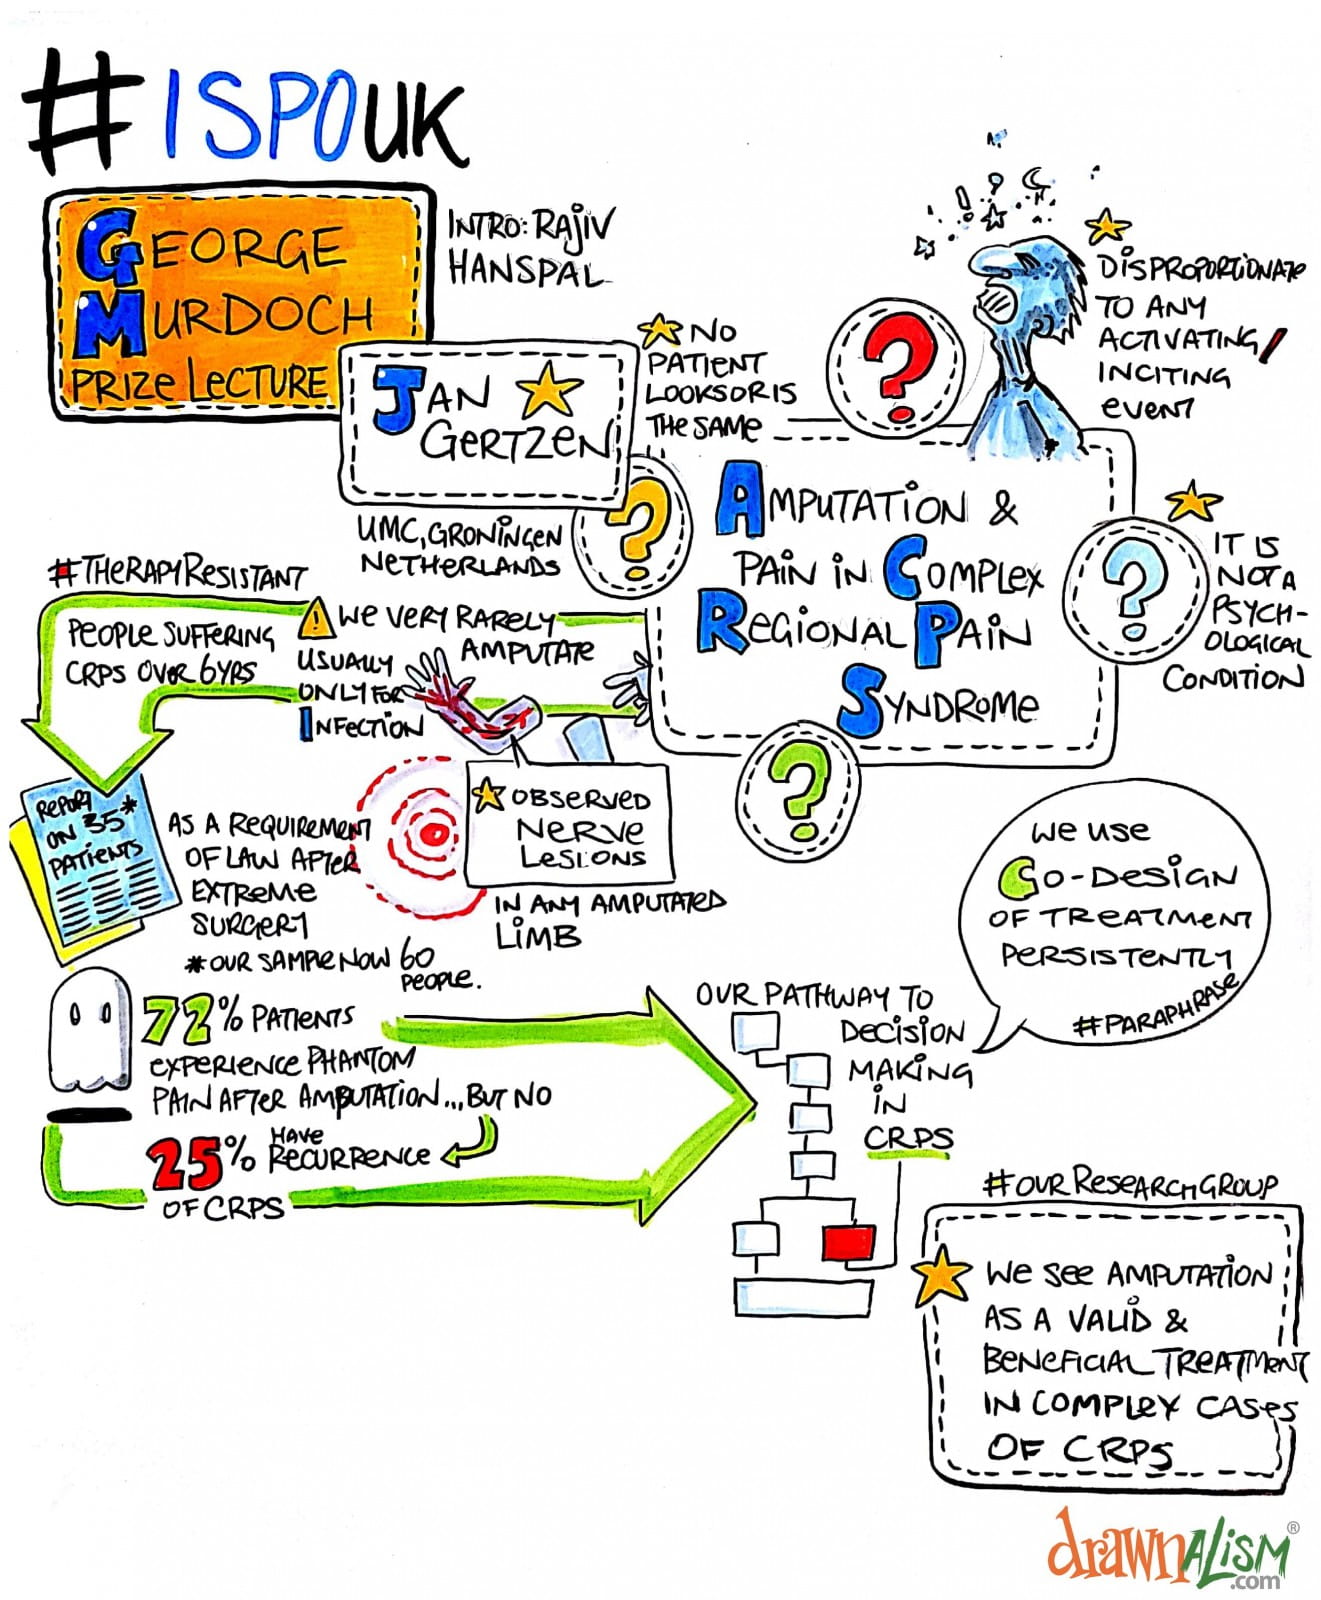 #ISPOUK
GEORGE
MURDOCH
PRIZE LECTURE
INTRO: RAJIV
HANSPAL
JAN
GERTZEN
UMC, GRONINGEN
NETHERLANDS
NO
PATIENT
LOOKS OR IS
THE SAME
?
DISPROPORTIONATE
TO ANY
ACTIVATING/
INCITING
EVENT
?
AMPUTATION &
PAIN IN COMPLEX
REGIONAL PAIN
SYNDROME
?
IT IS
NOT A
PSYCH-
OLOGICAL
CONDITION
?
#THERAPYRESISTANT
PEOPLE SUFFERING
CRPS OVER 6YRS
! WE VERY RARELY
AMPUTATE
USUALLY
ONLY FOR
INFECTION
OBSERVED
NERVE
LESIONS
IN ANY AMPUTATED
LIMB
REPORT
ON 35*
PATIENTS
AS A REQUIREMENT
OF LAW AFTER
EXTREME
SURGERY
*OUR SAMPLE NOW 60
PEOPLE.
72% PATIENTS
EXPERIENCE PHANTOM
PAIN AFTER AMPUTATION...BUT NO
25% HAVE
RECURRENCE
OF CRPS
OUR PATHWAY TO
DECISION
MAKING
IN
CRPS
WE USE
CO-DESIGN
OF TREATMENT
PERSISTENTLY
#PARAPHRASE
#OURRESEARCHGROUP
WE SEE AMPUTATION
AS A VALID &
BENEFICIAL TREATMENT
IN COMPLEX CASES
OF CRPS
drawnALISM®
.com